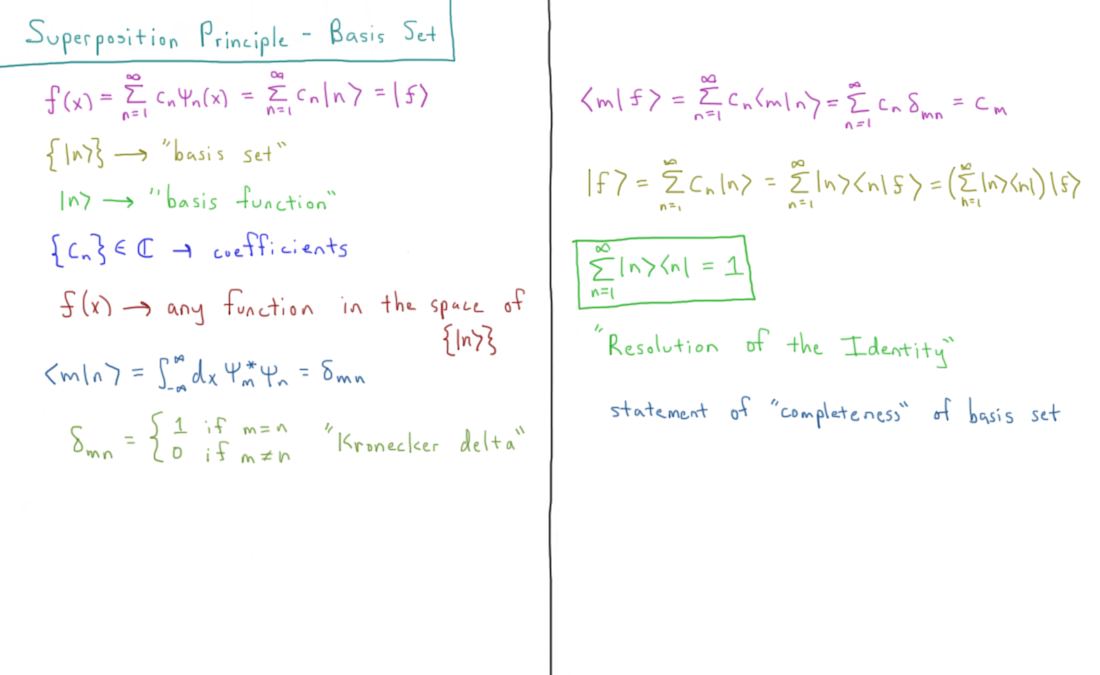 Superposition Principle - Basis Set
f(x) = ∑_{n=1}^{∞} cₙ Ψₙ(x) = ∑_{n=1}^{∞} cₙ|n⟩ = |f⟩
{|n⟩} → "basis set"
|n⟩ → "basis function"
{cₙ} ∈ ℂ → coefficients
f(x) → any function in the space of
{|n⟩}
⟨m|n⟩ = ∫_{-∞}^{∞} dx Ψₘ* Ψₙ = δₘₙ
δₘₙ = { 1 if m=n "Kronecker delta"
0 if m≠n
⟨m|f⟩ = ∑_{n=1}^{∞} cₙ⟨m|n⟩ = ∑_{n=1}^{∞} cₙ δₘₙ = cₘ
|f⟩ = ∑_{n=1}^{∞} cₙ|n⟩ = ∑_{n=1}^{∞} |n⟩⟨n|f⟩ = (∑_{n=1}^{∞} |n⟩⟨n|) |f⟩
∑_{n=1}^{∞} |n⟩⟨n| = 1
"Resolution of the Identity"
statement of "completeness" of basis set